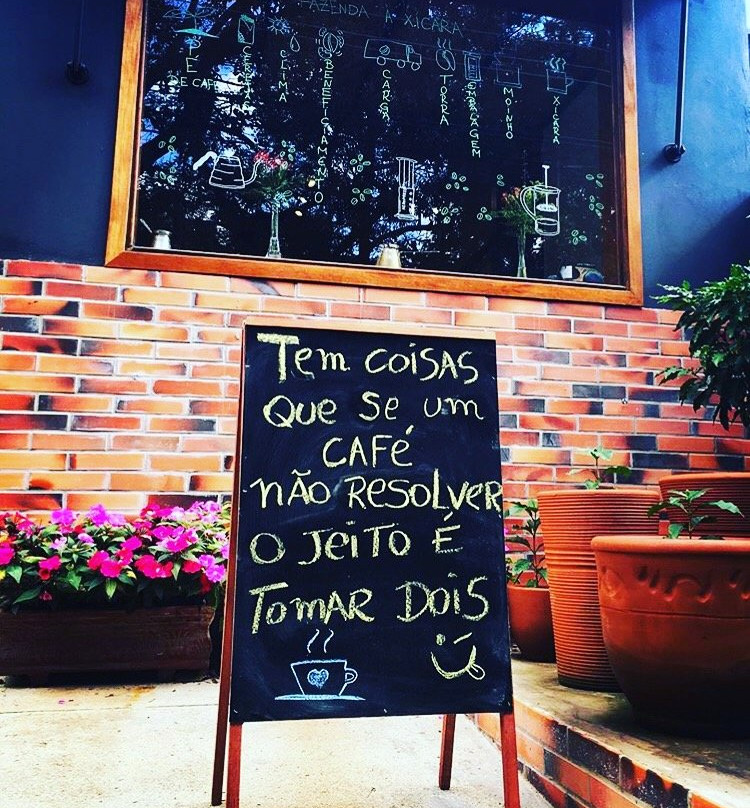 FAZENDA A XICARA
PÉ
DE CAFÉ
CLIMA
BENEFICIAMENTO
CARGA
TORRA
EMBALAGEM
MOINHO
XICARA
Tem coisas
Que se um
CAFÉ
não ResolveR
o Jeito É
Tomar DoiS